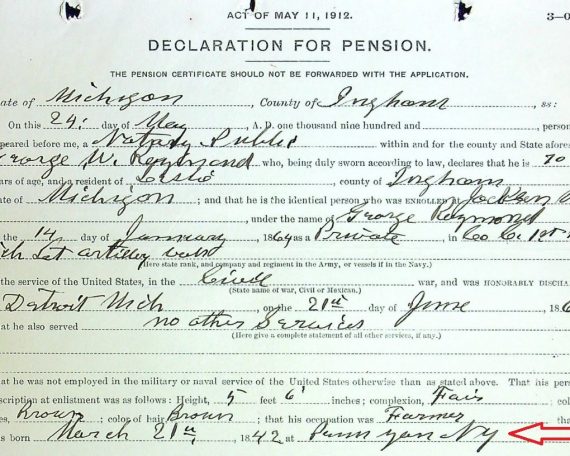 ACT OF MAY 11, 1912.
3—0
DECLARATION FOR PENSION.
THE PENSION CERTIFICATE SHOULD NOT BE FORWARDED WITH THE APPLICATION.
ate of Michigan , County of Ingham , ss:
On this 24: day of May , A. D. one thousand nine hundred and , person
peared before me, a Notary Public within and for the county and State afores
eorge W. Raymond who, being duly sworn according to law, declares that he is 70
ars of age, and a resident of Leslie , county of Ingham
ate of Michigan ; and that he is the identical person who was ENROLLED at Jackson
, under the name of George Raymond
the 14 day of January , 1864 as a Private , in Co C. 1st
ich 1st artillery vols
(Here state rank, and company and regiment in the Army, or vessels if in the Navy.)
the service of the United States, in the Civil war, and was HONORABLY DISCHA
(State name of war, Civil or Mexican.)
Detroit Mich , on the 21st day of June , 186
at he also served no other Services
(Here give a complete statement of all other services, if any.)
at he was not employed in the military or naval service of the United States otherwise than as stated above. That his pers
scription at enlistment was as follows: Height, 5 feet 6 inches; complexion, Fair ; colo
es, Brown ; color of hair Brown ; that his occupation was Farmer
s born March 21st , 1842 at Penn yan NY